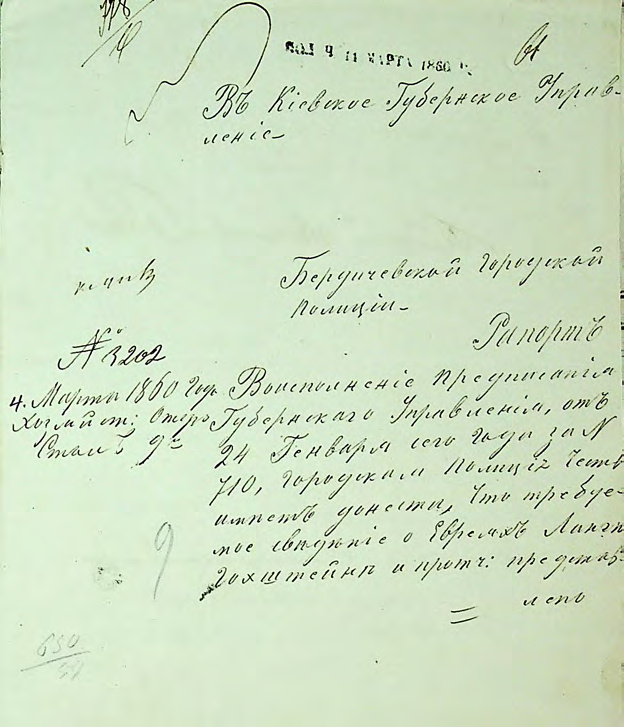 11 МАРТА 1860
Въ Кіевское Губернское Управ-
леніе
Бердичевской Городской
Полиціи
Рапортъ
№ 3202
4. Марта 1860 Года
Хозяйст: Отдр
Столъ 9й
Воисполненіе предписанія
Губернскаго Управленія, отъ
24 Генваря сего года за №
710, городская Полиція честь
имѣетъ донести, что требуе-
мое свѣденіе о Евреяхъ
Гохштейнѣ и протч: представ-
лено
9
650